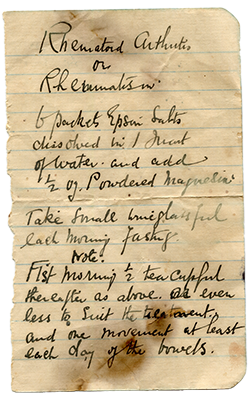 Rhematord Arthritis
or
Rheaumatism.
6 packets Epsom Salts
dissolved in 1 Pint
of water. and add
½ oz. Powdered Magnesia
Take Small wineglassful
each morning fasting.
Note.
First morning ½ teacupful
thereafter as above. or even
less to Suit the treatment,
and one movement at least
each day of the bowels.